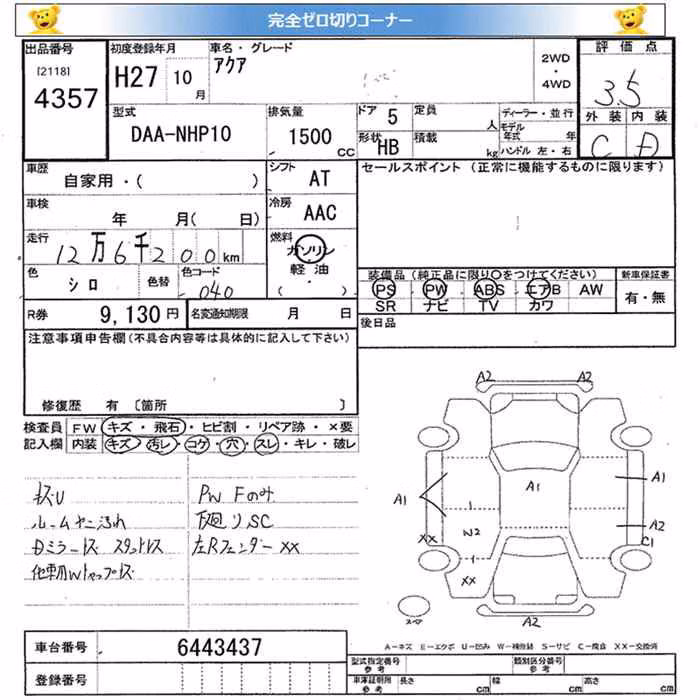 完全ゼロ切りコーナー
出品番号
[2118]
4357
初度登録年月
H27 10月
車名・グレード
アクア
2WD
・
4WD
評価点
3.5
外装 内装
C D
型式
DAA-NHP10
排気量
1500 CC
ドア 5
定員 人
形状 HB
積載 kg
ディーラー・並行
モデル年式 年
ハンドル 左・右
車歴
自家用・( )
シフト
AT
セールスポイント (正常に機能するものに限ります)
車検
年 月( 日)
冷房
AAC
走行
12万6千200km
燃料
ガソリン
軽油
( )
色
シロ
色替
色コード
040
装備品 (純正品に限り○をつけてください)
PS PW ABS エアB AW
SR ナビ TV カワ
新車保証書
有・無
R券 9,130円
名変通知期限 月 日
後日品
注意事項申告欄(不具合内容等は具体的に記入して下さい)
修復歴 有 〔箇所 〕
検査員記入欄
FW キズ・飛石・ヒビ割・リペア跡・×要
内装 キズ・汚レ・コゲ・穴・スレ・キレ・破レ
キズU
ルームヤニ汚れ
Dミラーキズ スタットレス
PW Fのみ
下廻りSC
左Rフェンダー××
A2 A2
A1
A1
A1
A2
W2
××
C1
××
A2
スペア
車台番号 6443437
登録番号
A-キズ E-エクボ U-凹み W-補修跡 S-サビ C-腐食 XX-交換済
型式指定番号 参考
類別区分番号 参考
車庫証明用 参考
長さ cm
幅 cm
高さ cm